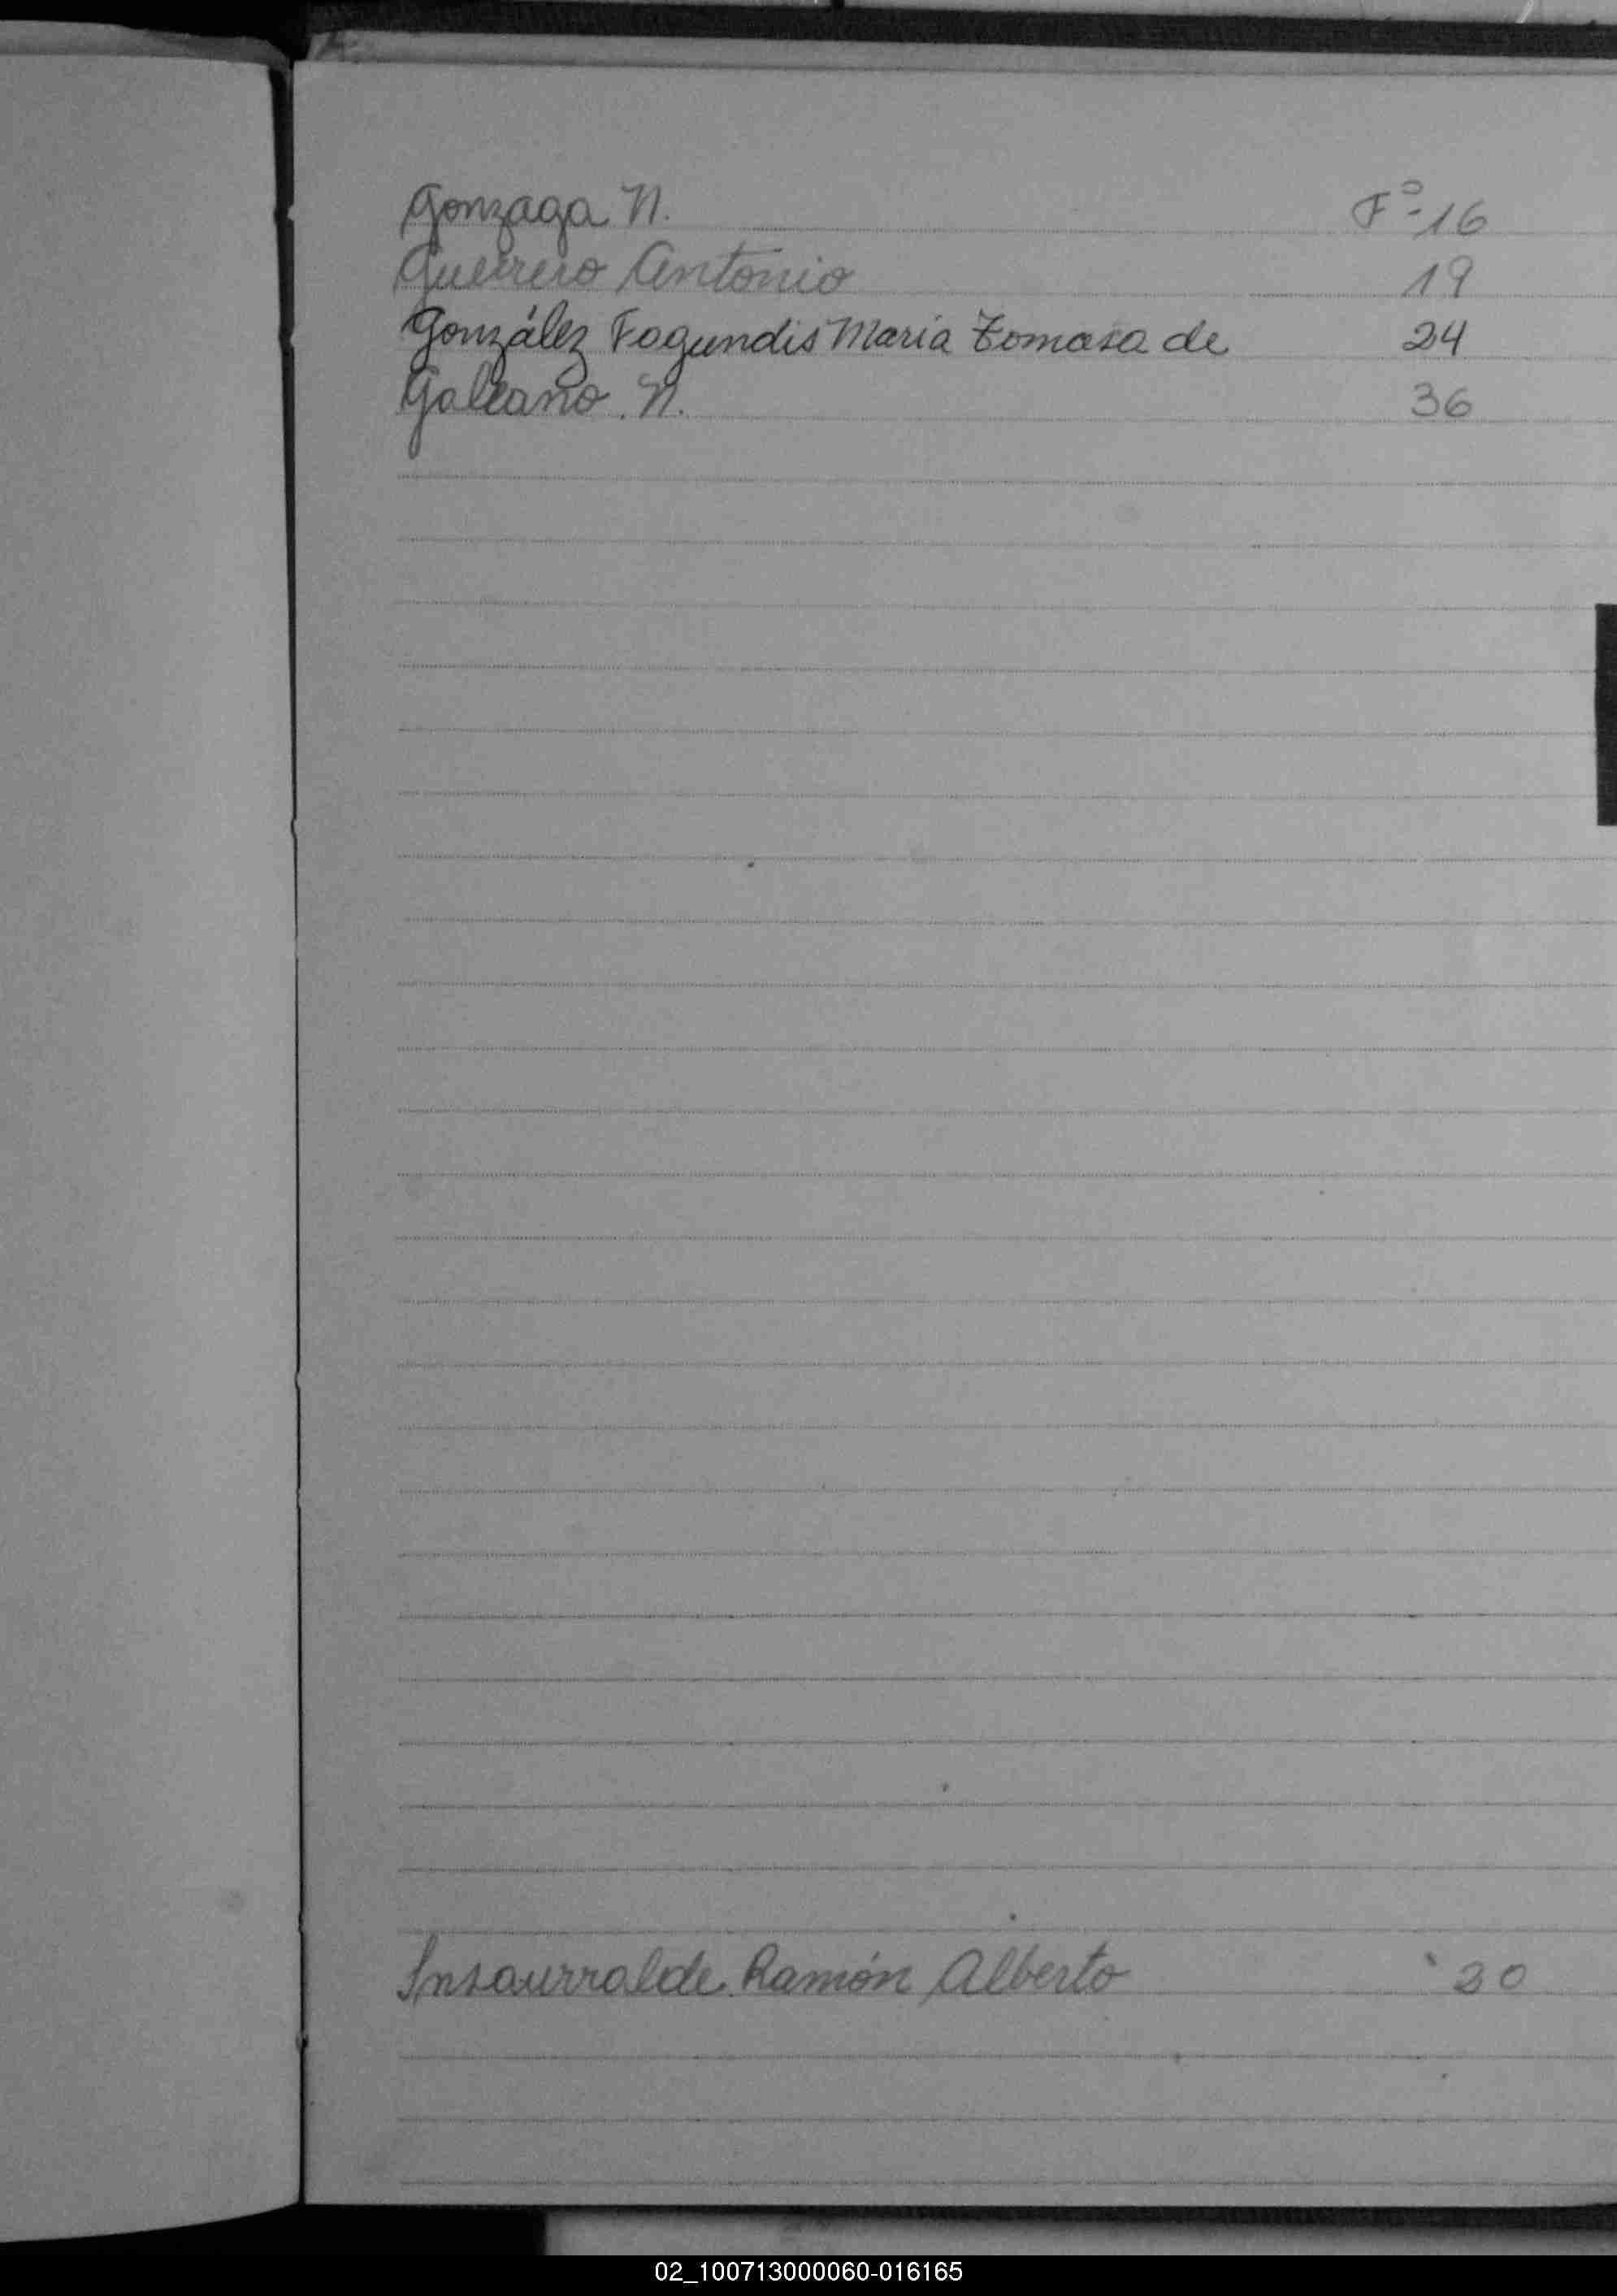 Gonzaga N. Fº-16
Guerrero Antonio 19
González Fagundis Maria Tomasa de 24
Galeano N. 36
Insaurralde Ramón Alberto 20
02_100713000060-016165